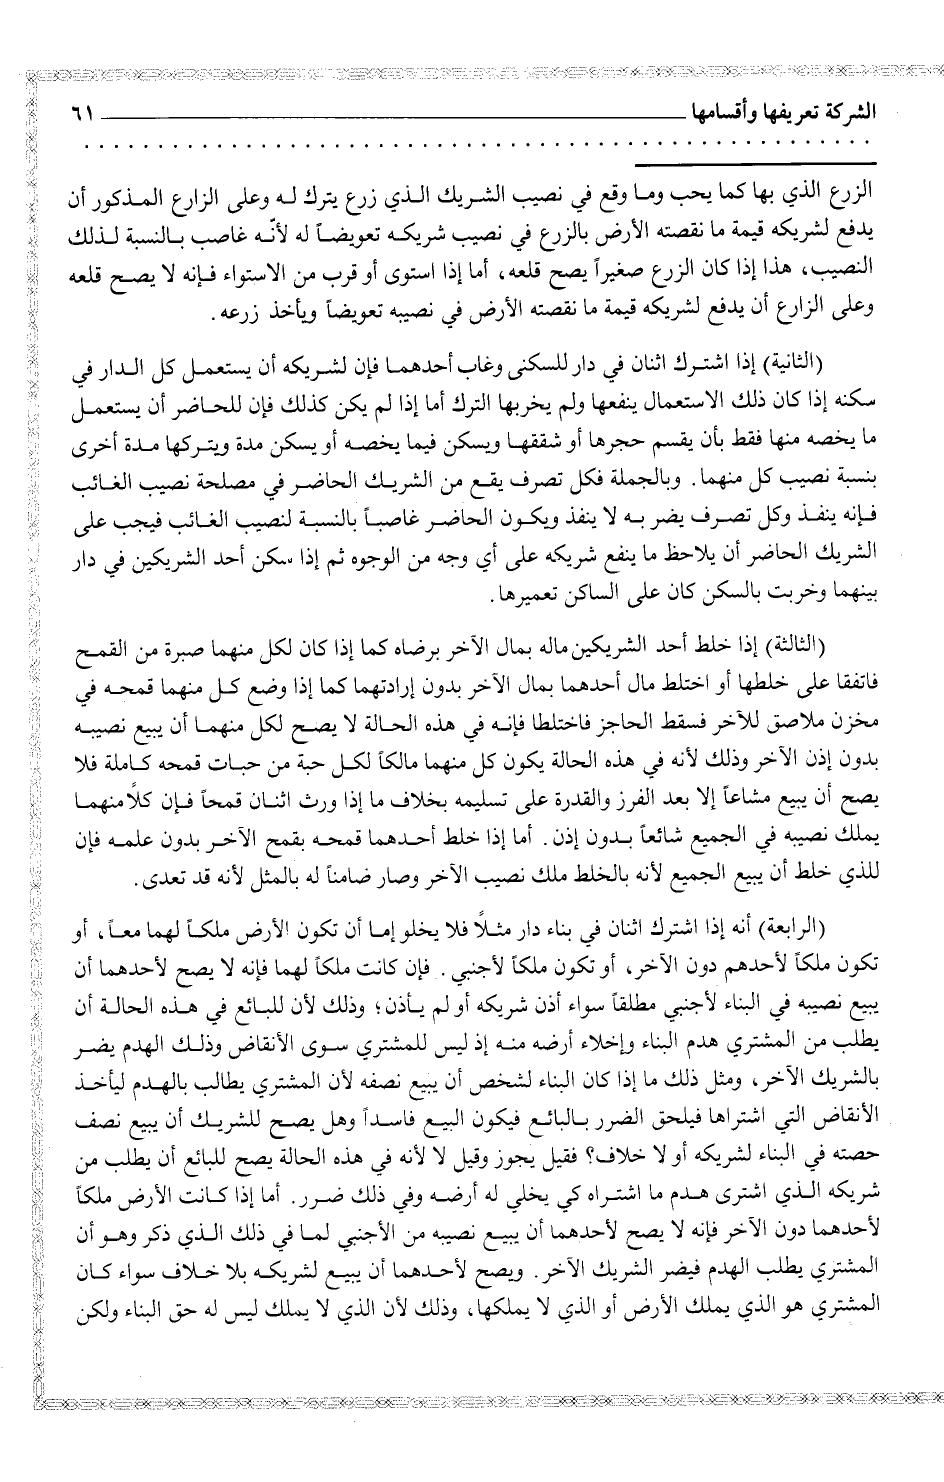 الشركة تعريفها وأقسامها ٦١
الزرع الذي بها كما يحب وما وقع في نصيب الشريك الذي زرع يترك له وعلى الزارع المذكور أن
يدفع لشريكه قيمة ما نقصته الأرض بالزرع في نصيب شريكه تعويضاً له لأنّه غاصب بالنسبة لذلك
النصيب، هذا إذا كان الزرع صغيراً يصح قلعه، أما إذا استوى أو قرب من الاستواء فإنه لا يصح قلعه
وعلى الزارع أن يدفع لشريكه قيمة ما نقصته الأرض في نصيبه تعويضاً ويأخذ زرعه.
(الثانية) إذا اشترك اثنان في دار للسكنى وغاب أحدهما فإن لشريكه أن يستعمل كل الدار في
سكنه إذا كان ذلك الاستعمال ينفعها ولم يخربها الترك أما إذا لم يكن كذلك فإن للحاضر أن يستعمل
ما يخصه منها فقط بأن يقسم حجرها أو شققها ويسكن فيما يخصه أو يسكن مدة ويتركها مدة أخرى
بنسبة نصيب كل منهما. وبالجملة فكل تصرف يقع من الشريك الحاضر في مصلحة نصيب الغائب
فإنه ينفذ وكل تصرف يضر به لا ينفذ ويكون الحاضر غاصباً بالنسبة لنصيب الغائب فيجب على
الشريك الحاضر أن يلاحظ ما ينفع شريكه على أي وجه من الوجوه ثم إذا سكن أحد الشريكين في دار
بينهما وخربت بالسكن كان على الساكن تعميرها.
(الثالثة) إذا خلط أحد الشريكين ماله بمال الآخر برضاه كما إذا كان لكل منهما صبرة من القمح
فاتفقا على خلطها أو اختلط مال أحدهما بمال الآخر بدون إرادتهما كما إذا وضع كل منهما قمحه في
مخزن ملاصق للآخر فسقط الحاجز فاختلطا فإنه في هذه الحالة لا يصح لكل منهما أن يبيع نصيبه
بدون إذن الآخر وذلك لأنه في هذه الحالة يكون كل منهما مالكاً لكل حبة من حبات قمحه كاملة فلا
يصح أن يبيع مشاعاً إلا بعد الفرز والقدرة على تسليمه بخلاف ما إذا ورث اثنان قمحاً فإن كلاًّ منهما
يملك نصيبه في الجميع شائعاً بدون إذن. أما إذا خلط أحدهما قمحه بقمح الآخر بدون علمه فإن
للذي خلط أن يبيع الجميع لأنه بالخلط ملك نصيب الآخر وصار ضامناً له بالمثل لأنه قد تعدى.
(الرابعة) أنه إذا اشترك اثنان في بناء دار مثلاً فلا يخلو إما أن تكون الأرض ملكاً لهما معاً، أو
تكون ملكاً لأحدهم دون الآخر، أو تكون ملكاً لأجنبي. فإن كانت ملكاً لهما فإنه لا يصح لأحدهما أن
يبيع نصيبه في البناء لأجنبي مطلقاً سواء أذن شريكه أو لم يأذن؛ وذلك لأن للبائع في هذه الحالة أن
يطلب من المشتري هدم البناء وإخلاء أرضه منه إذ ليس للمشتري سوى الأنقاض وذلك الهدم يضر
بالشريك الآخر، ومثل ذلك ما إذا كان البناء لشخص أن يبيع نصفه لأن المشتري يطالب بالهدم ليأخذ
الأنقاض التي اشتراها فيلحق الضرر بالبائع فيكون البيع فاسداً وهل يصح للشريك أن يبيع نصف
حصته في البناء لشريكه أو لا خلاف؟ فقيل يجوز وقيل لا لأنه في هذه الحالة يصح للبائع أن يطلب من
شريكه الذي اشترى هدم ما اشتراه كي يخلي له أرضه وفي ذلك ضرر. أما إذا كانت الأرض ملكاً
لأحدهما دون الآخر فإنه لا يصح لأحدهما أن يبيع نصيبه من الأجنبي لما في ذلك الذي ذكر وهو أن
المشتري يطلب الهدم فيضر الشريك الآخر. ويصح لأحدهما أن يبيع لشريكه بلا خلاف سواء كان
المشتري هو الذي يملك الأرض أو الذي لا يملكها، وذلك لأن الذي لا يملك ليس له حق البناء ولكن